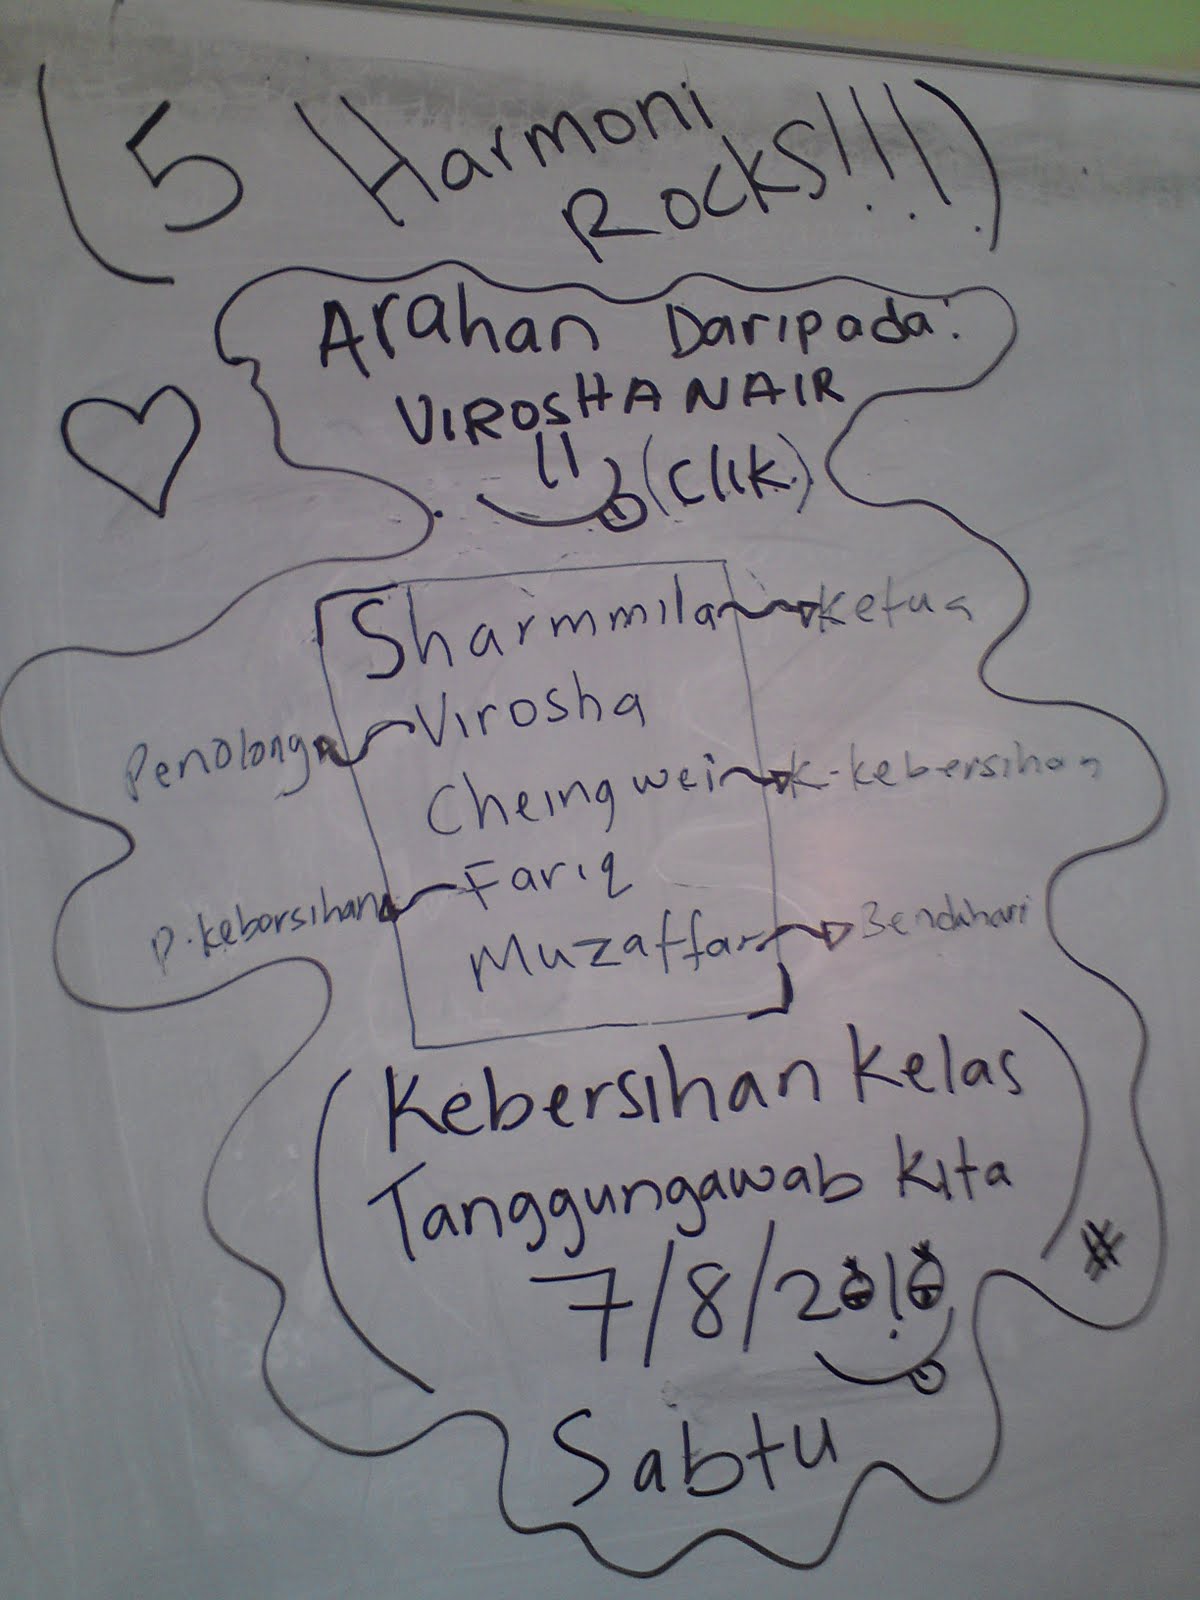 (5 Harmoni
ROCKS!!!!)
Arahan Daripada:
VIROSHA NAIR
(Clik)
Sharmmila Ketua
Penolong Virosha
Cheing wei K-kebersihan
P.kebersihan Fariq
Muzaffar Bendahari
(Kebersihan Kelas
Tanggungawab Kita)
7/8/2010
#
Sabtu